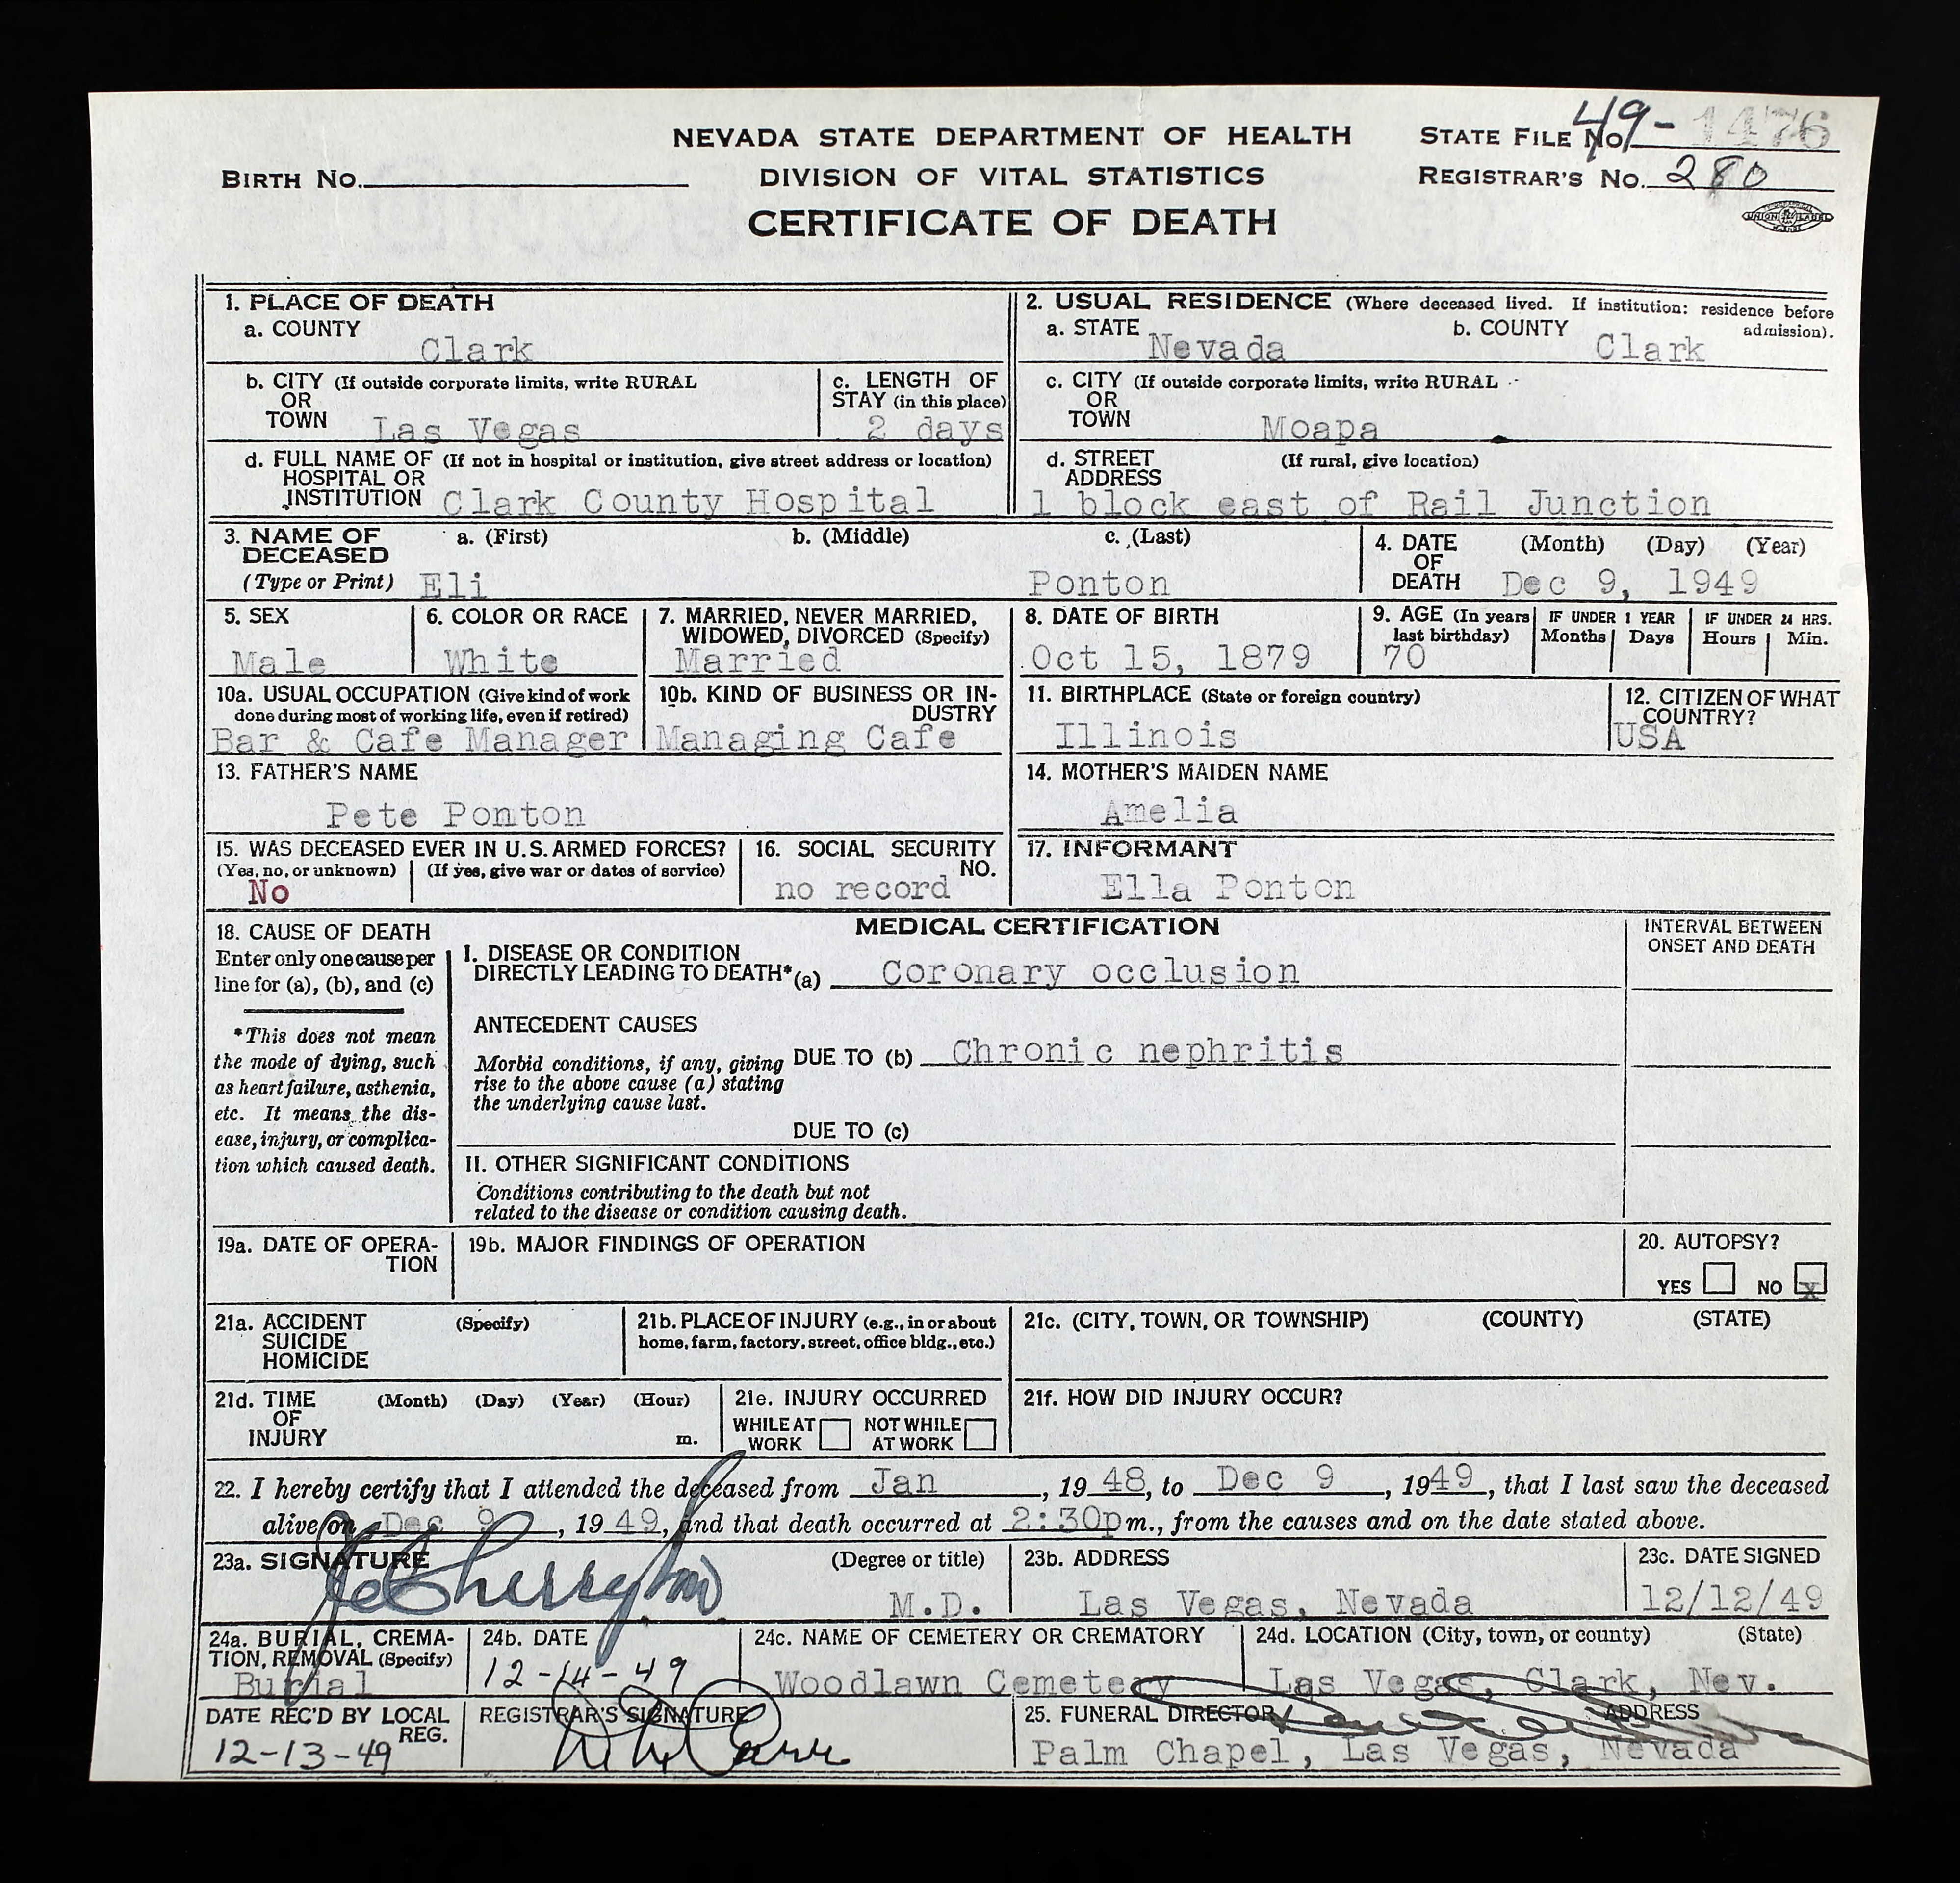 NEVADA STATE DEPARTMENT OF HEALTH
STATE FILE No. 49-1476
BIRTH No.
DIVISION OF VITAL STATISTICS
REGISTRAR'S No. 280
CERTIFICATE OF DEATH
UNION LABEL
1. PLACE OF DEATH
a. COUNTY
Clark
2. USUAL RESIDENCE (Where deceased lived. If institution: residence before admission).
a. STATE Nevada
b. COUNTY Clark
b. CITY (If outside corporate limits, write RURAL
OR
TOWN Las Vegas
c. LENGTH OF
STAY (in this place)
2 days
c. CITY (If outside corporate limits, write RURAL
OR
TOWN Moapa
d. FULL NAME OF (If not in hospital or institution, give street address or location)
HOSPITAL OR
INSTITUTION Clark County Hospital
d. STREET (If rural, give location)
ADDRESS
1 block east of Rail Junction
3. NAME OF
DECEASED
(Type or Print)
a. (First)
Eli
b. (Middle)
c. (Last)
Ponton
4. DATE (Month) (Day) (Year)
OF
DEATH Dec 9, 1949
5. SEX
Male
6. COLOR OR RACE
White
7. MARRIED, NEVER MARRIED,
WIDOWED, DIVORCED (Specify)
Married
8. DATE OF BIRTH
Oct 15, 1879
9. AGE (In years
last birthday)
70
IF UNDER 1 YEAR
Months Days
IF UNDER 24 HRS.
Hours Min.
10a. USUAL OCCUPATION (Give kind of work
done during most of working life, even if retired)
Bar & Cafe Manager
10b. KIND OF BUSINESS OR IN-
DUSTRY
Managing Cafe
11. BIRTHPLACE (State or foreign country)
Illinois
12. CITIZEN OF WHAT
COUNTRY?
USA
13. FATHER'S NAME
Pete Ponton
14. MOTHER'S MAIDEN NAME
Amelia
15. WAS DECEASED EVER IN U.S. ARMED FORCES?
(Yes, no, or unknown) (If yes, give war or dates of service)
No
16. SOCIAL SECURITY
NO.
no record
17. INFORMANT
Ella Ponton
18. CAUSE OF DEATH
Enter only one cause per
line for (a), (b), and (c)
*This does not mean
the mode of dying, such
as heart failure, asthenia,
etc. It means the dis-
ease, injury, or complica-
tion which caused death.
MEDICAL CERTIFICATION
INTERVAL BETWEEN
ONSET AND DEATH
I. DISEASE OR CONDITION
DIRECTLY LEADING TO DEATH*(a) Coronary occlusion
ANTECEDENT CAUSES
Morbid conditions, if any, giving
rise to the above cause (a) stating
the underlying cause last.
DUE TO (b) Chronic nephritis
DUE TO (c)
II. OTHER SIGNIFICANT CONDITIONS
Conditions contributing to the death but not
related to the disease or condition causing death.
19a. DATE OF OPERA-
TION
19b. MAJOR FINDINGS OF OPERATION
20. AUTOPSY?
YES NO X
21a. ACCIDENT (Specify)
SUICIDE
HOMICIDE
21b. PLACE OF INJURY (e.g., in or about
home, farm, factory, street, office bldg., etc.)
21c. (CITY, TOWN, OR TOWNSHIP) (COUNTY) (STATE)
21d. TIME (Month) (Day) (Year) (Hour)
OF
INJURY m.
21e. INJURY OCCURRED
WHILE AT NOT WHILE
WORK AT WORK
21f. HOW DID INJURY OCCUR?
22. I hereby certify that I attended the deceased from Jan , 19 48, to Dec 9 , 1949 , that I last saw the deceased
alive on Dec 9 , 19 49, and that death occurred at 2:30p m., from the causes and on the date stated above.
23a. SIGNATURE (Degree or title)
M.D.
23b. ADDRESS
Las Vegas, Nevada
23c. DATE SIGNED
12/12/49
24a. BURIAL, CREMA-
TION, REMOVAL (Specify)
Burial
24b. DATE
12-14-49
24c. NAME OF CEMETERY OR CREMATORY
Woodlawn Cemetery
24d. LOCATION (City, town, or county) (State)
Las Vegas, Clark, Nev.
DATE REC'D BY LOCAL
REG.
12-13-49
REGISTRAR'S SIGNATURE
25. FUNERAL DIRECTOR ADDRESS
Palm Chapel, Las Vegas, Nevada